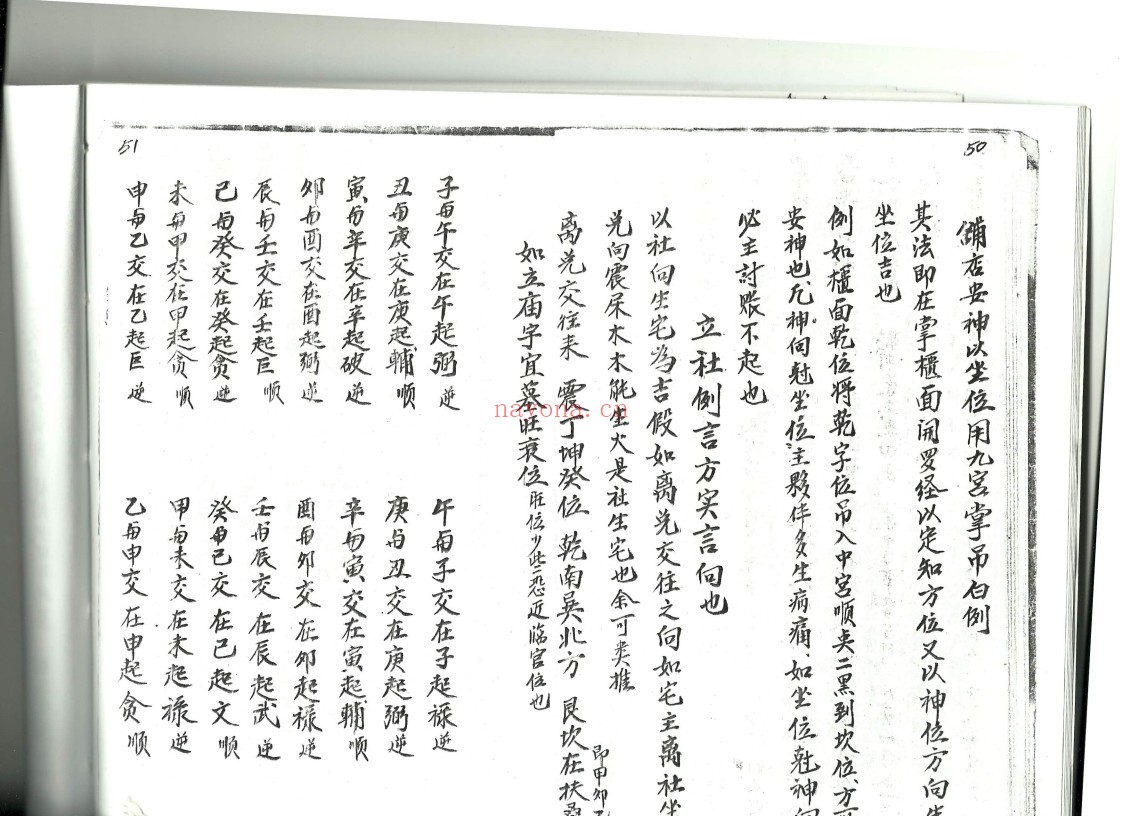 50
鋪店安神以坐位用九宫掌吊白例
其法即在掌櫃面開罗经以定知方位又以神位方向生
坐位吉也
例如櫃面乾位将乾字位吊入中宫順去二黑到坎位、方可
安神也、凡神向尅坐位、主夥伴多生病痛、如坐位尅神向
必主討賬不起也
立社例言方实言向也
以社向生宅为吉假如离兑交往之向如宅主离社坐
兑向震屎木木能生火是社生宅也余可类推
即甲卯乙
离兑交往来 震丁坤癸位 乾南巽北方 艮坎在扶桑
如立庙字宜墓旺衰位旺位少些忌近临官位也
51
子与午交在午起弼 逆
丑与庚交在庚起輔 順
寅与辛交在辛起破 逆
卯与酉交在酉起弼 逆
辰与壬交在壬起巨 順
己与癸交在癸起贪 逆
未与甲交在甲起贪 順
申与乙交在乙起巨 逆
午与子交在子起禄 逆
庚与丑交在庚起弼 逆
辛与寅交在寅起輔 順
酉与卯交在卯起禄 逆
壬与辰交在辰起武 逆
癸与已交在已起文 順
甲与未交在未起禄 逆
乙与申交在申起贪 順
nayona.cn